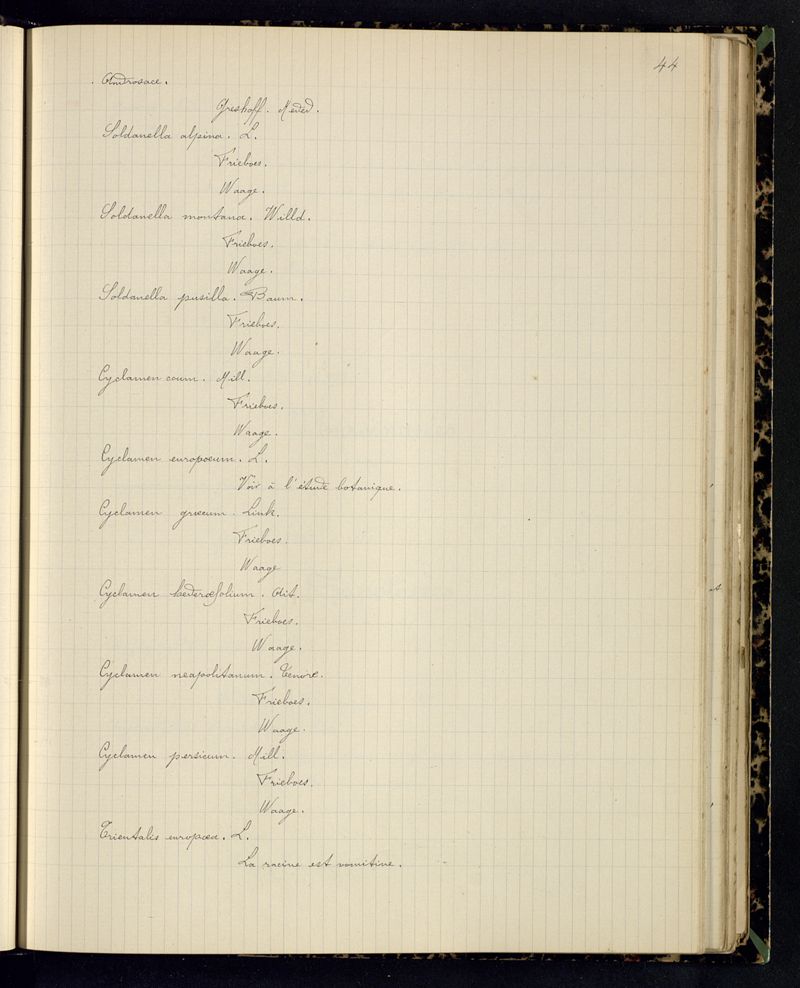 44
Androsace.
Greshoff. Meded.
Soldanella alpina. L.
Frieboes.
Waage.
Soldanella montana. Willd.
Frieboes.
Waage.
Soldanella pusilla. Baum.
Frieboes.
Waage.
Cyclamen coum. Mill.
Frieboes.
Waage.
Cyclamen europœum. L.
Voir à l'étude botanique.
Cyclamen græcum. Link.
Frieboes.
Waage
Cyclamen hederæfolium. Ait.
Frieboes.
Waage.
Cyclamen neapolitanum. Tenore.
Frieboes.
Waage.
Cyclamen persicum. Mill.
Frieboes.
Waage.
Trientalis europœa. L.
La racine est vomitive.